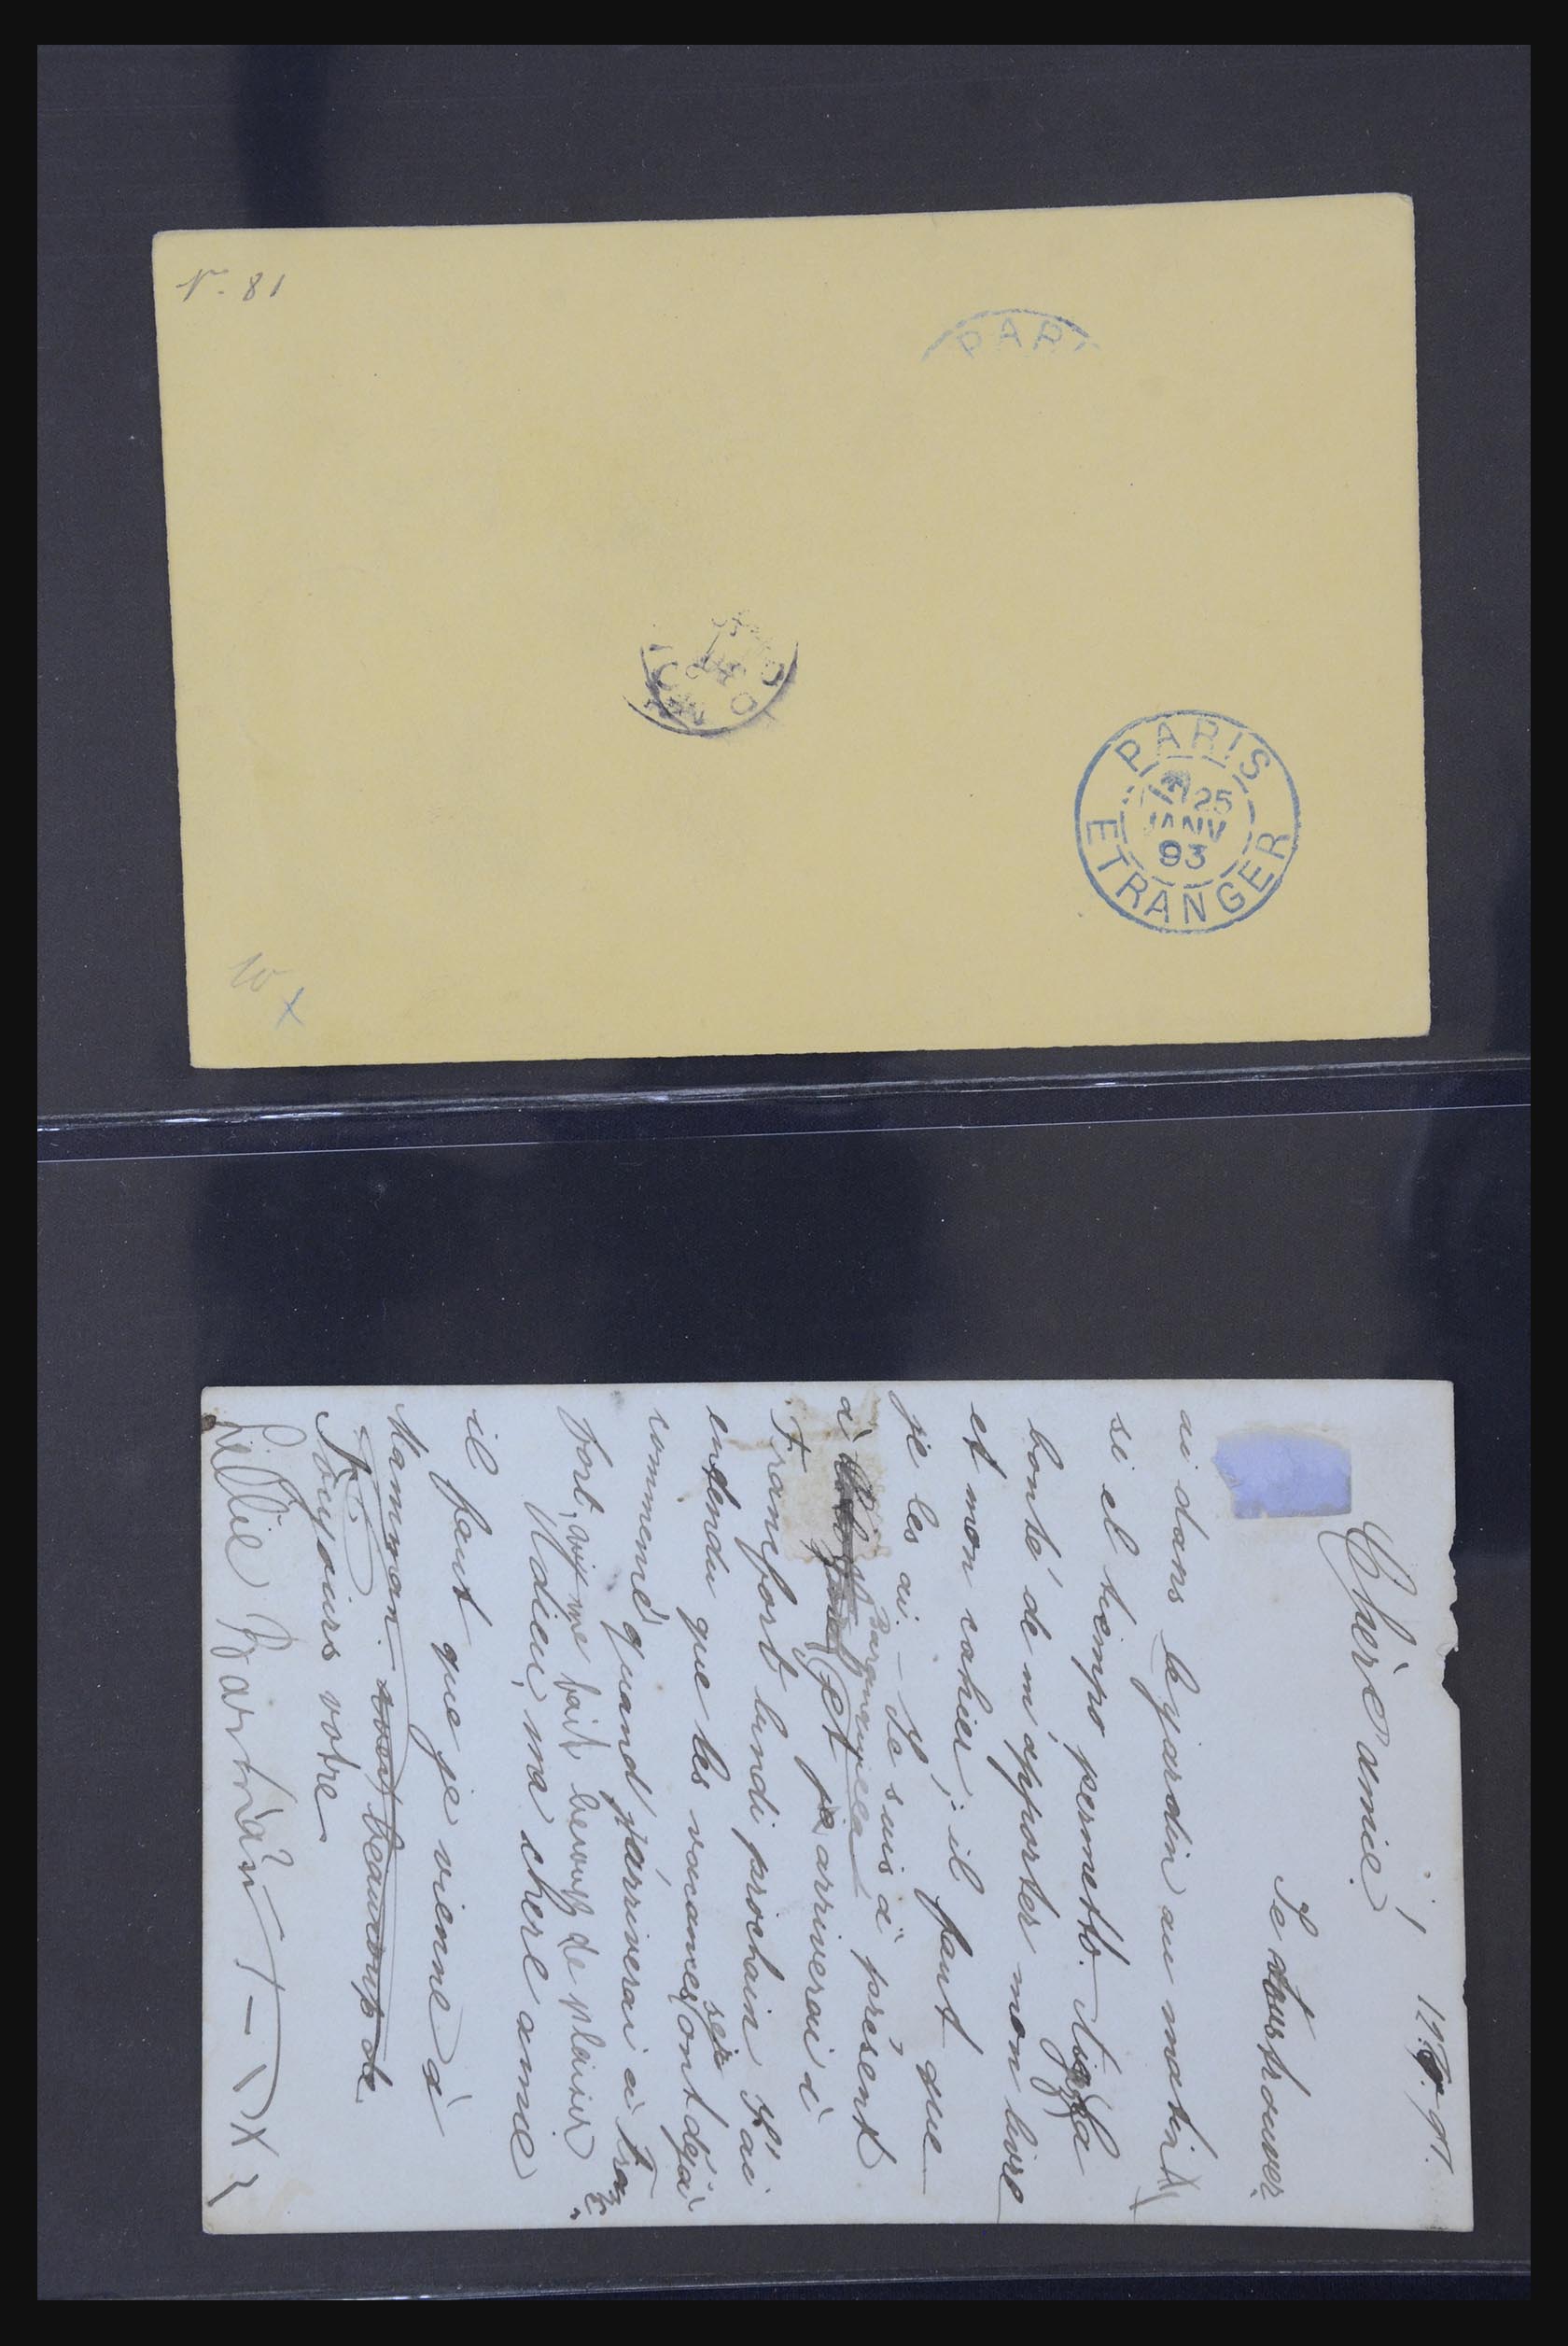 N. 81
PARI
PARIS
25
JANV
93
ETRANGER
10 X
Chère amie
Je vous trouver
ai dans le jardin au matin
si el tiempo permetto. la
bonté de m'apporter mon livre
et mon cahier; il faut que
je les ai. – Je suis à présent
à
et je arriverai à
Francfort lundi prochain J'ai
entendu que les vacances ont déjà
commencé quand j'arriverai à
fort, qui me fait beaucoup de plaisir
Adieu, ma chere amie
il faut que je vienne à
Mamman beaucoup de
Toujours votre
Lillie